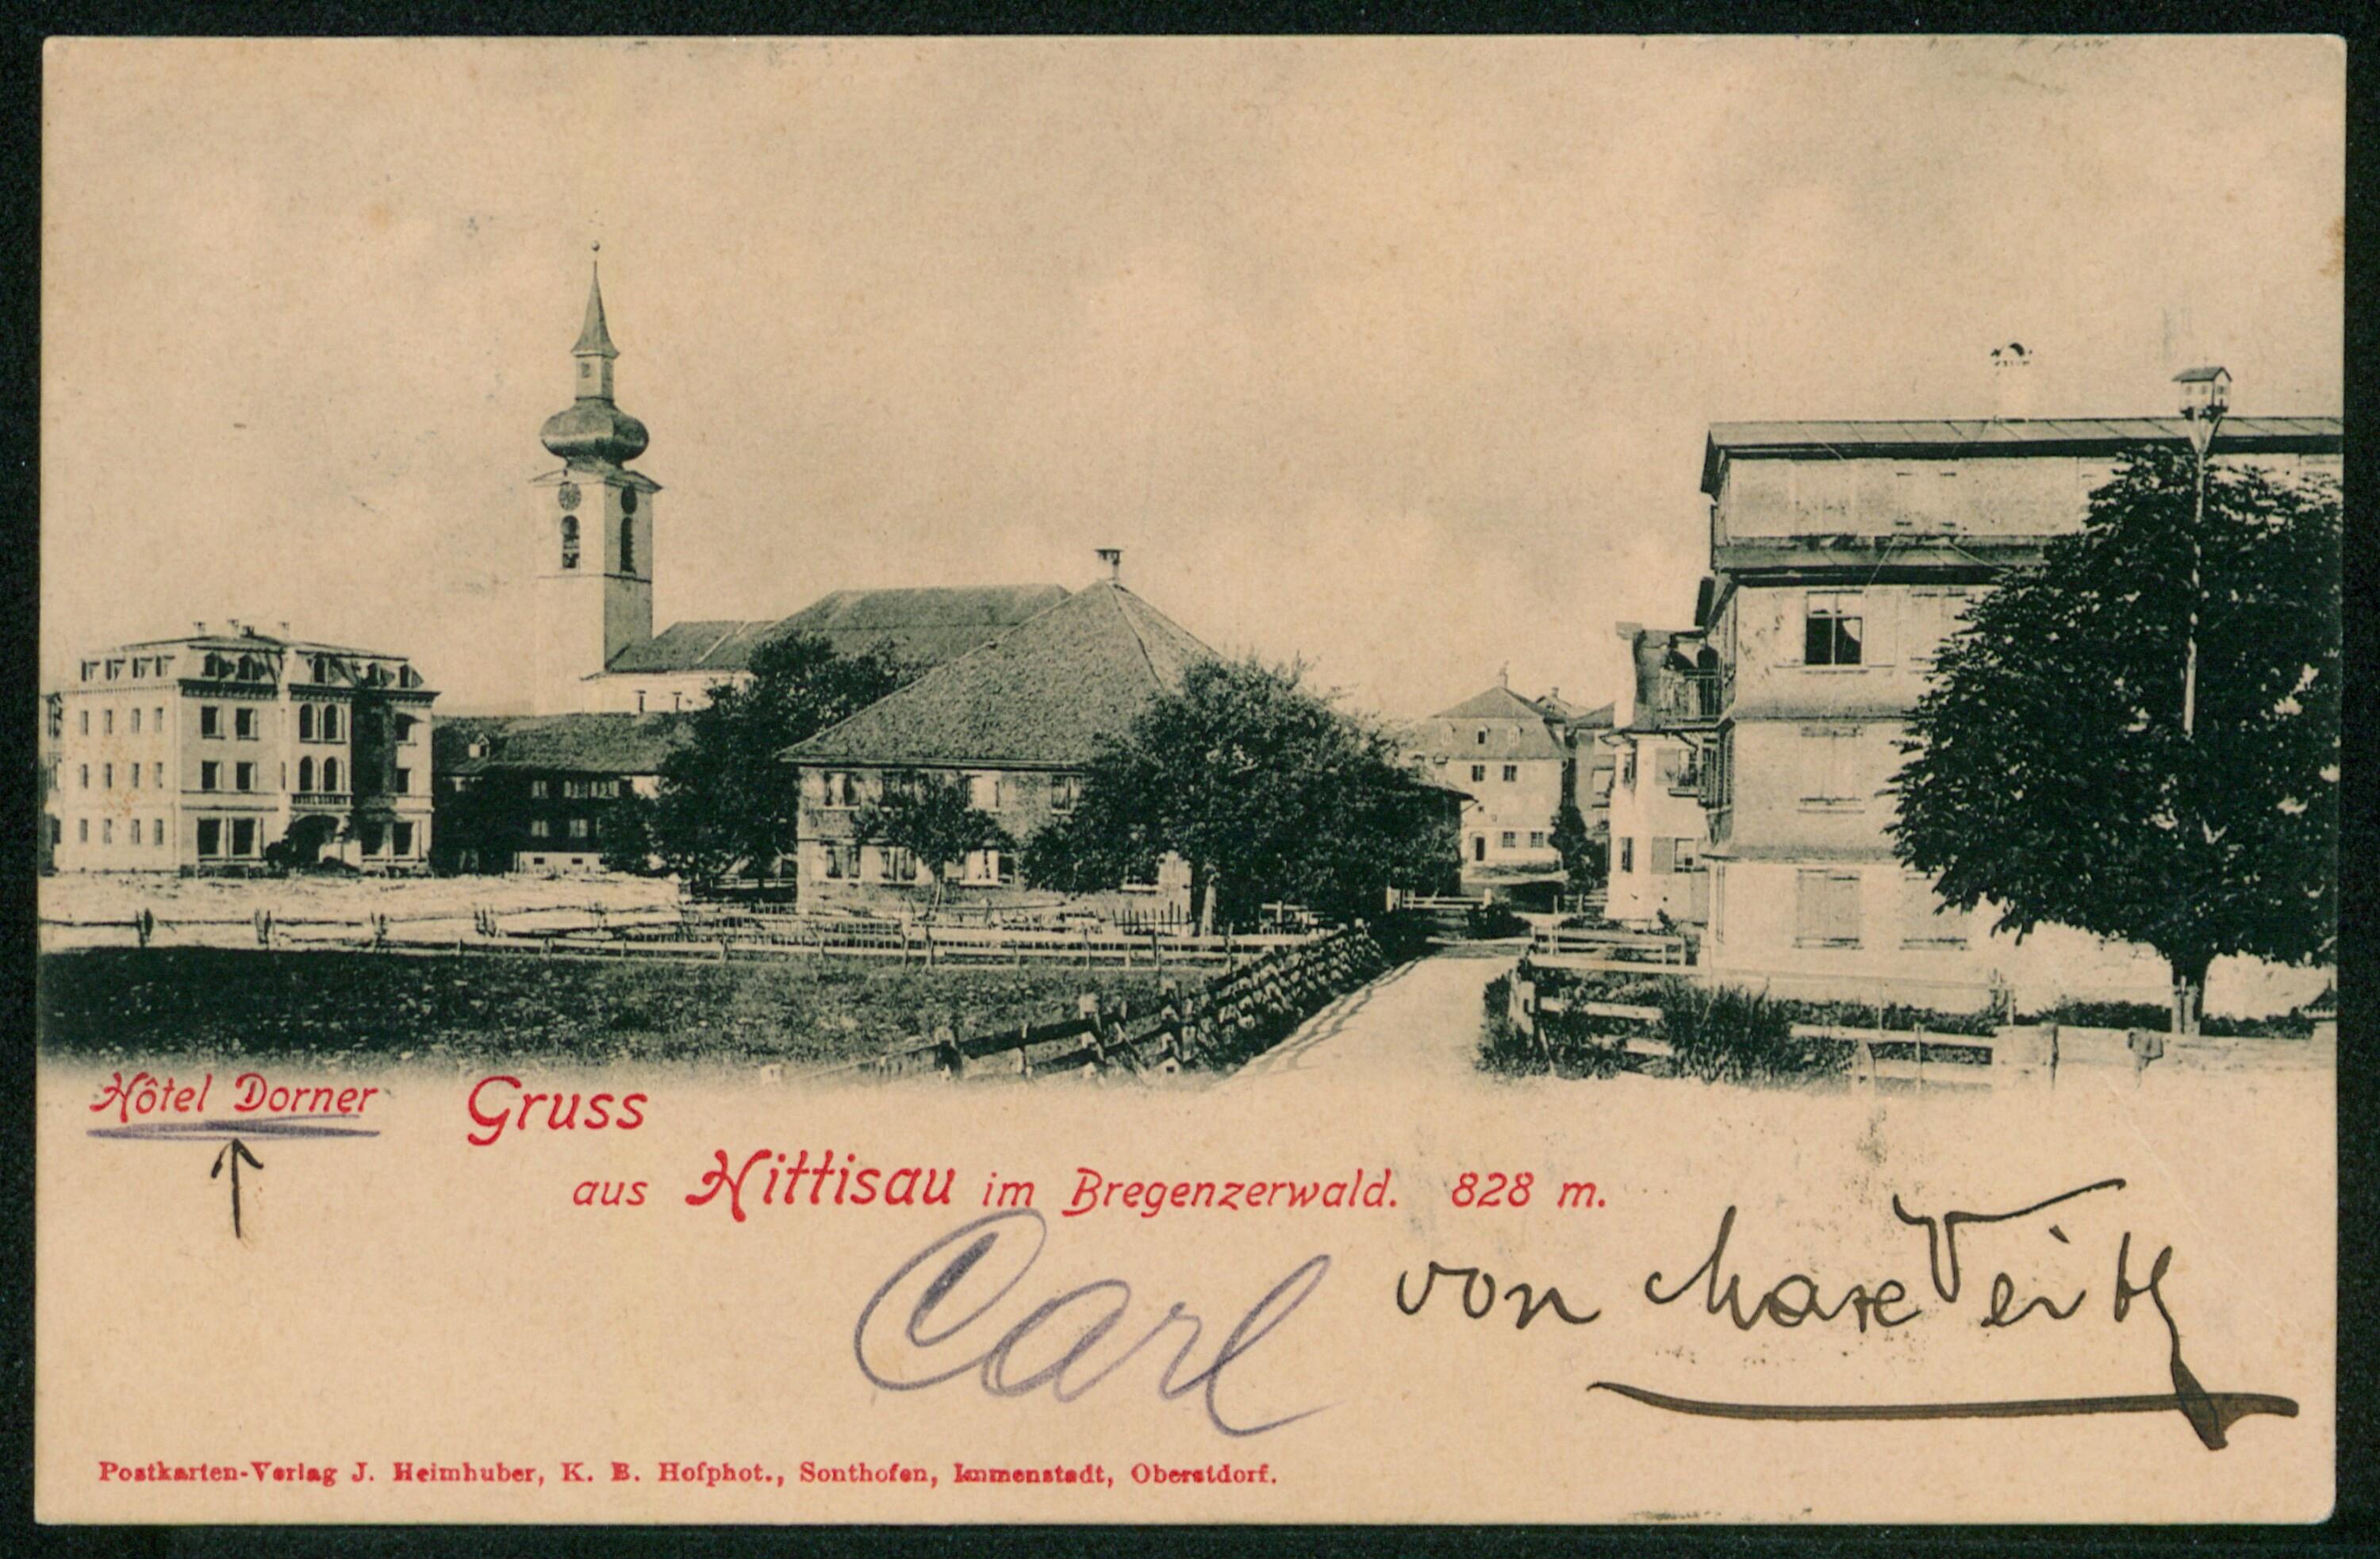 HOTEL DORNER
Hôtel Dorner Gruss
aus Hittisau im Bregenzerwald. 828 m.
Carl
von Max Veith
Postkarten-Verlag J. Heimhuber, K. B. Hofphot., Sonthofen, Immenstadt, Oberstdorf.